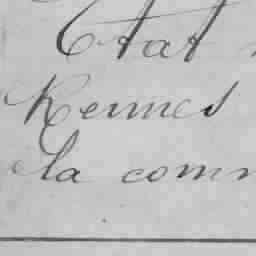 Etat
Rennes
la comm